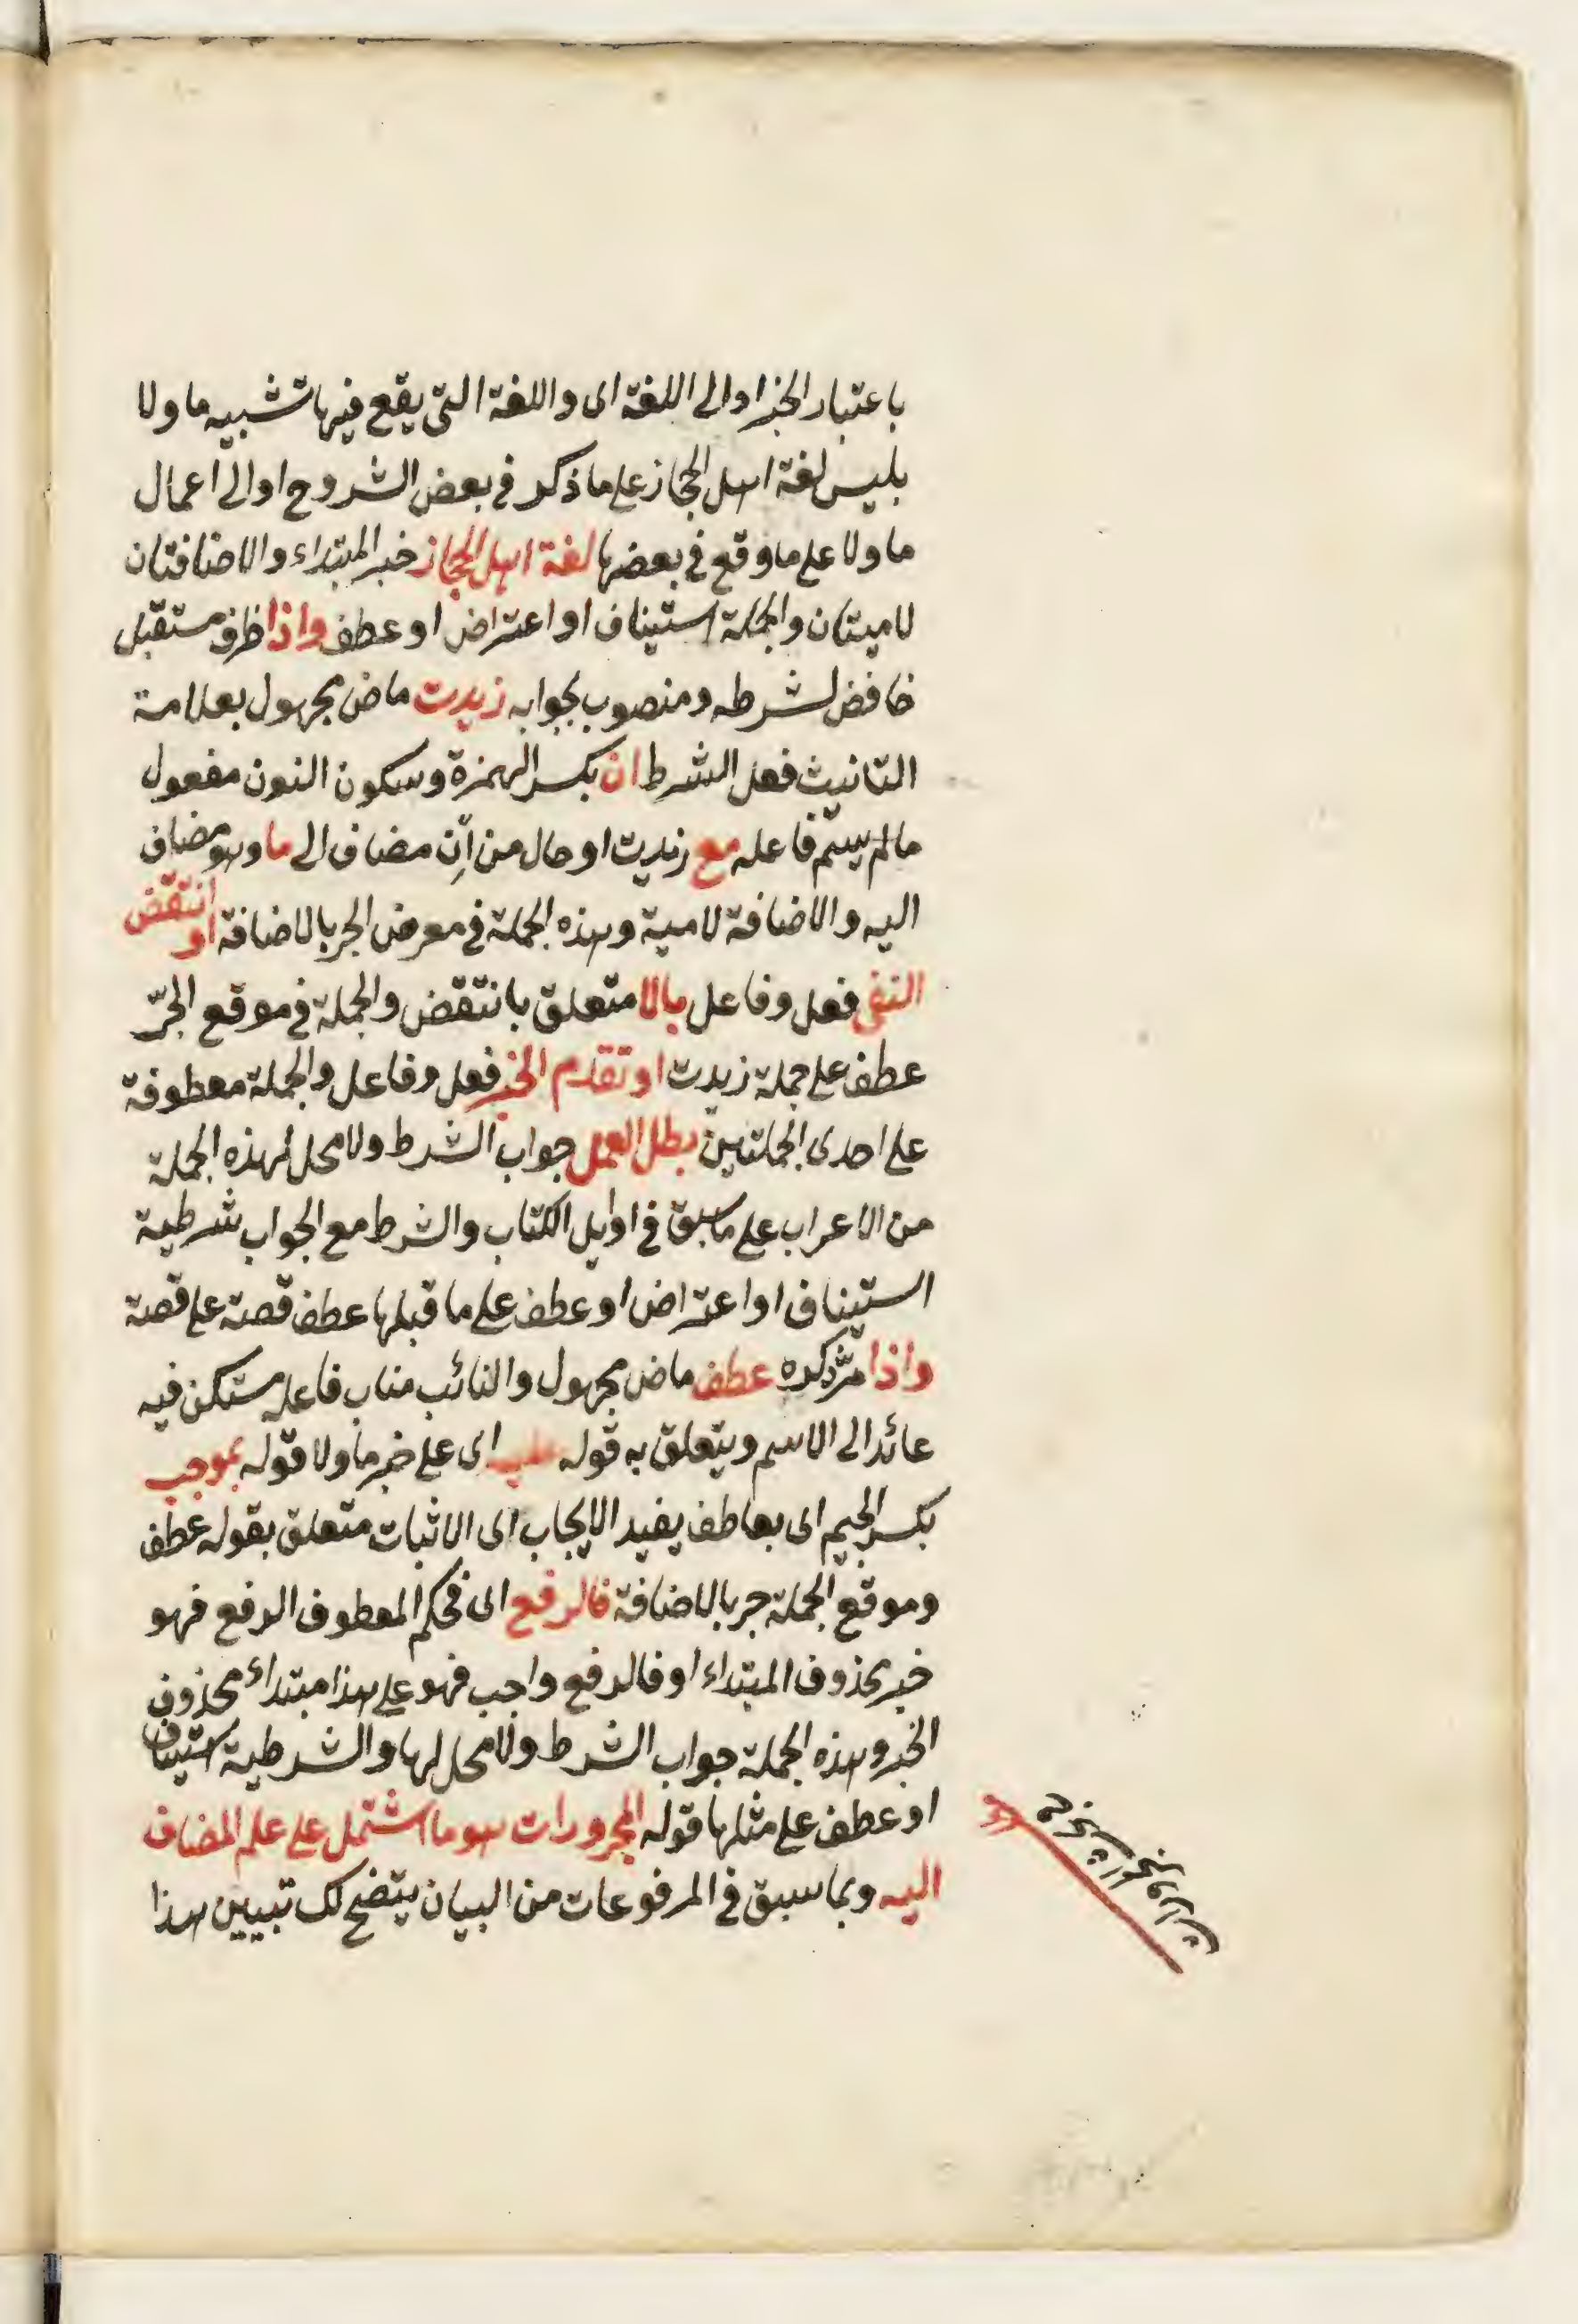 باعتبار الخبر او الى اللغة اى واللغة التى يقع فيها تشبيه ما ولا
بليس لغة اهل الحجاز على ما ذكر فى بعض الشروح او الى اعمال
ما ولا على ما وقع فى بعضها لغة اهل الحجاز خبر المبتداء والاضافتان
لاميتان والجملة استيناف او اعتراض او عطف واذا ظرف مستقبل
خافض لشرطه ومنصوب بجوابه زيدت ماض مجهول بعلامة
التانيث فعل الشرط ان بكسر الهمزة وسكون النون مفعول
مالم يسم فاعله مع زيدت او حال من اِن مضاف الى ما وهو مضاف
اليه والاضافة لامية وهذه الجملة فى معرض الجر بالاضافة او انتقض
النفى فعل وفاعل بالا متعلق بانتقض والجملة فى موقع الجرّ
عطف على جملة زيدت او تقدم الخبر فعل وفاعل والجملة معطوفة
على احدى الجملتين بطل العمل جواب الشرط ولا محل لهذه الجملة
من الاعراب على ما سبق فى اوايل الكتاب والشرط مع الجواب شرطية
استيناف او اعتراض او عطف على ما قبلها عطف قصة على قصة
واذا مرّ ذكره عطف ماض مجهول والنائب مناب فاعله مستكن فيه
عائد الى الاسم ويتعلق به قوله عليه اى على خبر ما ولا قوله بموجب
بكسر الجيم اى بعاطف يفيد الايجاب اى الاثبات متعلق بقوله عطف
وموقع الجملة جر بالاضافة فالرفع اى فحكم المعطوف الرفع فهو
خبر محذوف المبتداء او فالرفع واجب فهو على هذا مبتداء محذوف
الخبر وهذه الجملة جواب الشرط ولا محل لها والشرطية استيناف
او عطف على مثلها قوله المجرورات هو ما اشتمل على علم المضاف
اليه وبما سبق فى المرفوعات من البيان يتضح لك تبيين هذا